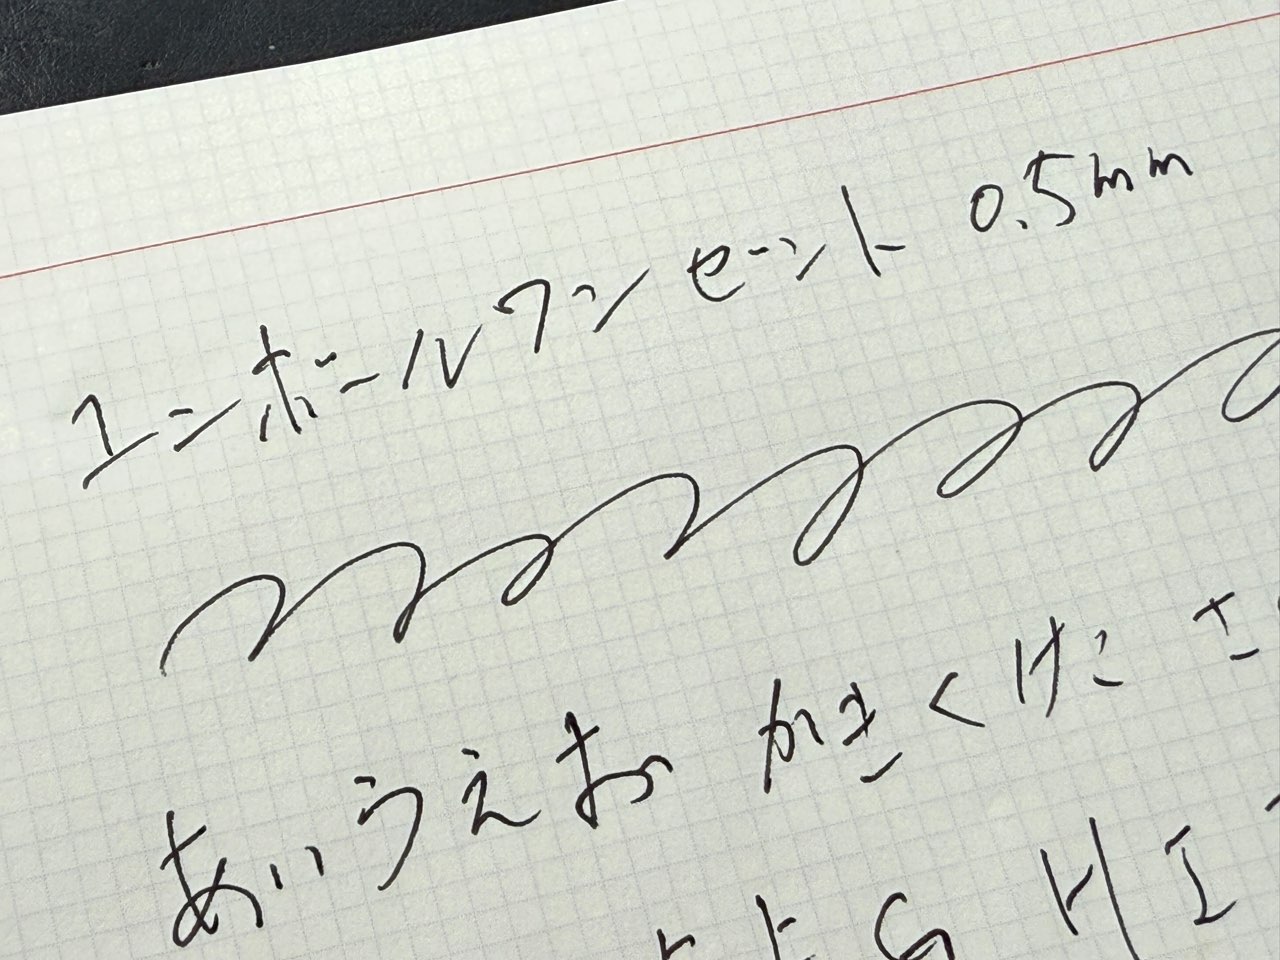 ユニボールワン セント 0.5mm
あいうえお かきくけこ さ